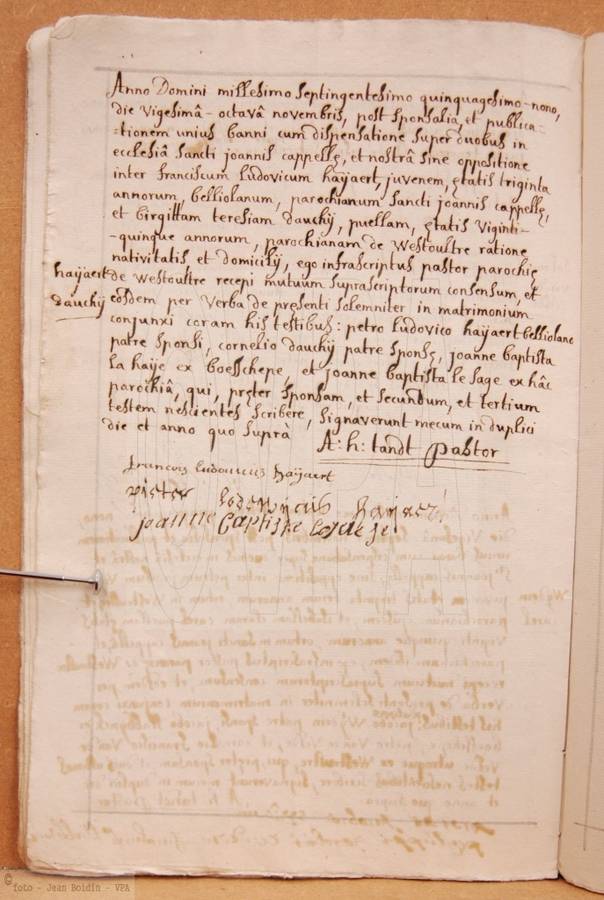 Anno Domini millesimo septingentesimo quinquagesimo-nono,
die vigesimâ-octavâ novembris, post sponsalia, et publica-
-tionem unius banni cum dispensatione super duobus in
ecclesiâ sancti joannis cappellę, et nostrâ sine oppositione
inter franciscum ludovicum haÿaert, juvenem, ętatis triginta
annorum, belliolanum, parochianum sancti joannis cappellę,
et birgittam teresiam dauchÿ, puellam, ętatis viginti-
-quinque annorum, parochianam de westoultre ratione
nativitatis et domicilÿ, ego infrascriptus pastor parochię
haÿaert de westoultre recepi mutuum suprascriptorum consensum, et
dauchÿ eosdem per verba de pręsenti solemniter in matrimonium
conjunxi coram his testibus: petro ludovico haÿaert belliolano
patre sponsi, cornelio dauchÿ patre sponsę, joanne baptista
la haÿe ex boesschepe, et joanne baptista le sage ex hâc
parochiâ, qui, pręter sponsam, et secundum, et tertium
testem nescientes scribere, signaverunt mecum in duplici
die et anno quo suprà A: h: tandt pastor
francois ludovicus haÿaert
pieter lodewijcus haijaert
joanne baptiste
© foto - Jean Boidin - VPA